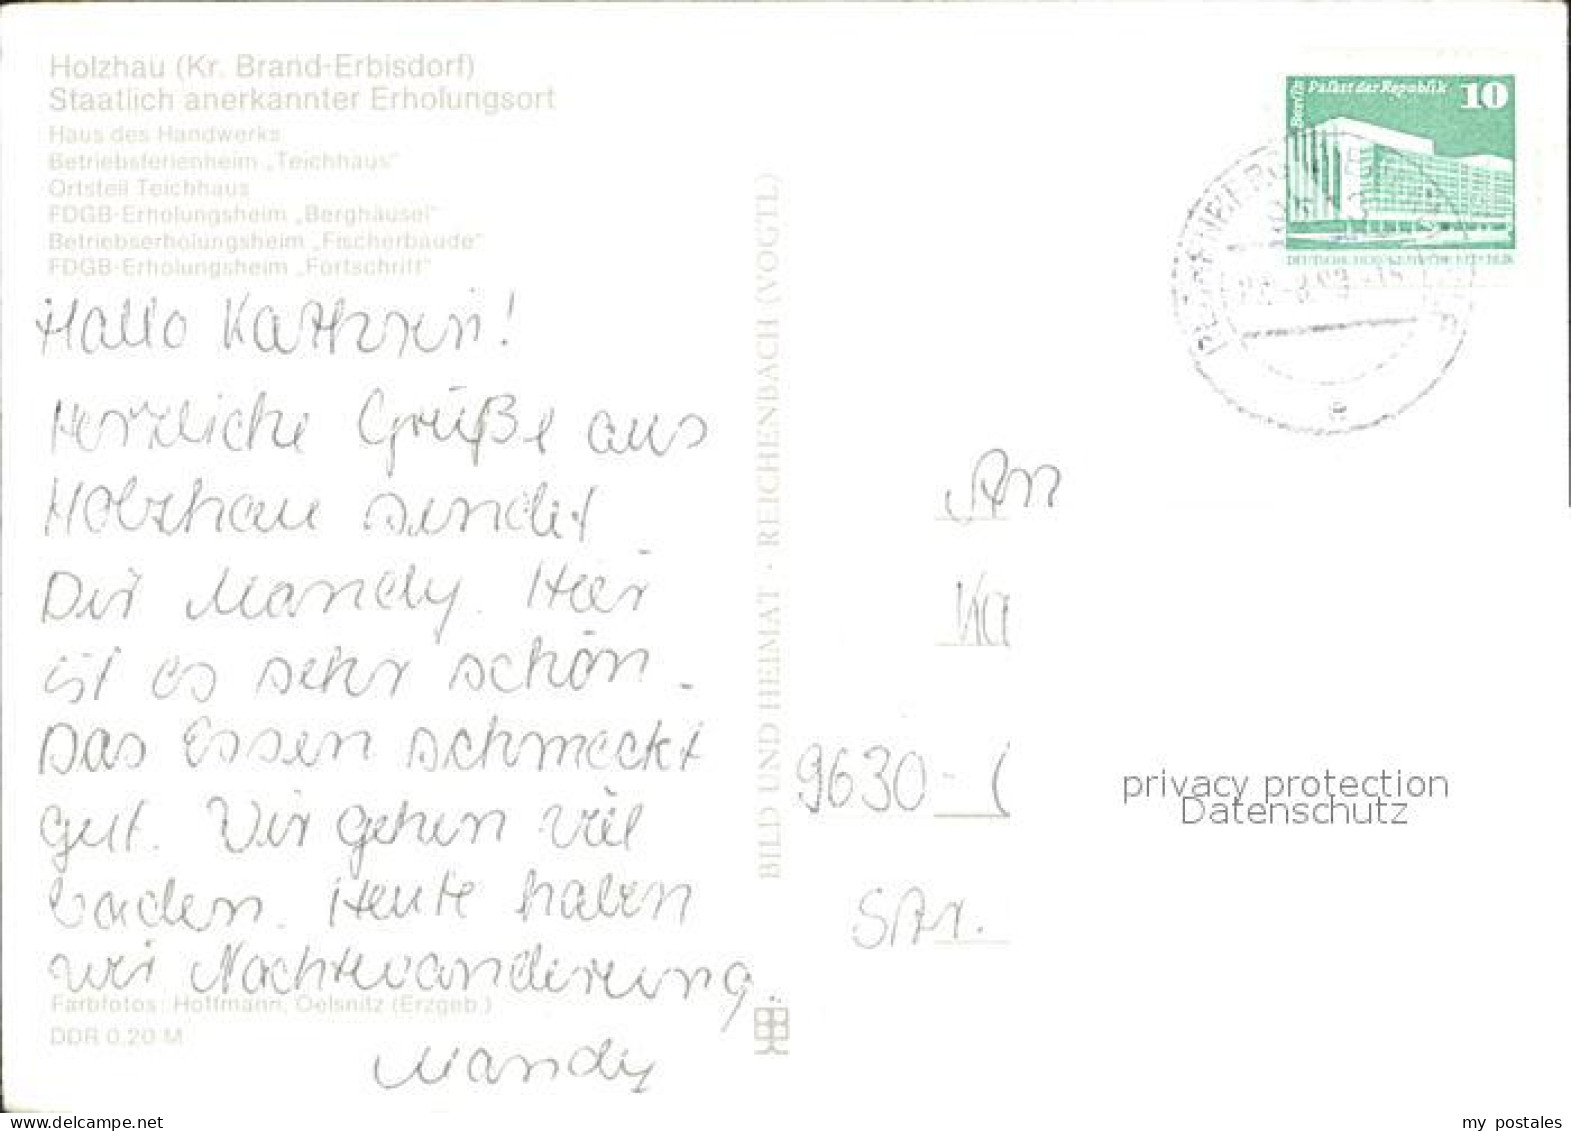 Holzhau (Kr. Brand-Erbisdorf)
Staatlich anerkannter Erholungsort
Haus des Handwerks
Betriebsferienheim „Teichhaus"
Ortsteil Teichhaus
FDGB-Erholungsheim „Berghäusel"
Betriebserholungsheim „Fischerbaude"
FDGB-Erholungsheim „Fortschritt"
Hallo Kathrin!
Herzliche Grüße aus
Holzhau sendet
Dir Mandy. Hier
ist es sehr schön.
Das Essen schmeckt
gut. Wir gehen viel
baden. Heute haben
wir Nachtwanderung.
Mandy
Farbfotos: Hoffmann, Oelsnitz (Erzgeb.)
DDR 0,20 M
BILD UND HEIMAT · REICHENBACH (VOGTL)
Berlin Palast der Republik 10
DEUTSCHE DEMOKRATISCHE REPUBLIK
An
Ka
9630 - C
Str.
privacy protection
Datenschutz
my postales